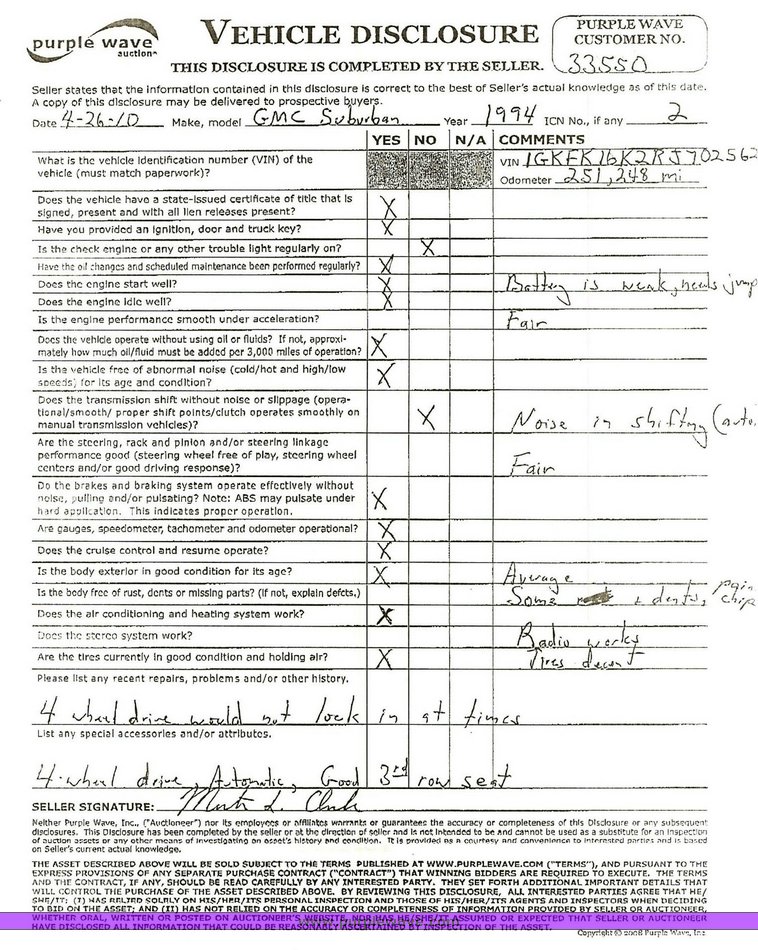 purple wave
auction
VEHICLE DISCLOSURE
THIS DISCLOSURE IS COMPLETED BY THE SELLER.
PURPLE WAVE
CUSTOMER NO.
33550
Seller states that the information contained in this disclosure is correct to the best of Seller's actual knowledge as of this date.
A copy of this disclosure may be delivered to prospective buyers.
Date 4-26-10 Make, model GMC Suburban Year 1994 ICN No., if any 2
YES NO N/A COMMENTS
What is the vehicle identification number (VIN) of the
vehicle (must match paperwork)?
VIN 1GKFK16K2RJ702562
Odometer 251,248 mi
Does the vehicle have a state-issued certificate of title that is
signed, present and with all lien releases present? X
Have you provided an ignition, door and truck key? X
Is the check engine or any other trouble light regularly on? X
Have the oil changes and scheduled maintenance been performed regularly? X
Does the engine start well? X Battery is weak, needs jump
Does the engine idle well? X
Is the engine performance smooth under acceleration? Fair
Does the vehicle operate without using oil or fluids? If not, approxi-
mately how much oil/fluid must be added per 3,000 miles of operation? X
Is the vehicle free of abnormal noise (cold/hot and high/low
speeds) for its age and condition? X
Does the transmission shift without noise or slippage (opera-
tional/smooth/ proper shift points/clutch operates smoothly on
manual transmission vehicles)? X Noise in shifting (auto.
Are the steering, rack and pinion and/or steering linkage
performance good (steering wheel free of play, steering wheel
centers and/or good driving response)? Fair
Do the brakes and braking system operate effectively without
noise, pulling and/or pulsating? Note: ABS may pulsate under
hard application. This indicates proper operation. X
Are gauges, speedometer, tachometer and odometer operational? X
Does the cruise control and resume operate? X
Is the body exterior in good condition for its age? X Average
Is the body free of rust, dents or missing parts? (if not, explain defcts.) Some & dents, pain chip
Does the air conditioning and heating system work? X
Does the stereo system work? Radio works
Are the tires currently in good condition and holding air? X Tires decent
Please list any recent repairs, problems and/or other history.
4 wheel drive would not lock in at times
List any special accessories and/or attributes.
4-wheel drive, Automatic, Good 3rd row seat
SELLER SIGNATURE:
Neither Purple Wave, Inc., ("Auctioneer") nor its employees or affiliates warrants or guarantees the accuracy or completeness of this Disclosure or any subsequent
disclosures. This Disclosure has been completed by the seller or at the direction of seller and is not intended to be and cannot be used as a substitute for an inspection
of auction assets or any other means of investigating an asset's history and condition. It is provided as a courtesy and convenience to interested parties and is based
on Seller's current actual knowledge.
THE ASSET DESCRIBED ABOVE WILL BE SOLD SUBJECT TO THE TERMS PUBLISHED AT WWW.PURPLEWAVE.COM ("TERMS"), AND PURSUANT TO THE
EXPRESS PROVISIONS OF ANY SEPARATE PURCHASE CONTRACT ("CONTRACT") THAT WINNING BIDDERS ARE REQUIRED TO EXECUTE. THE TERMS
AND THE CONTRACT, IF ANY, SHOULD BE READ CAREFULLY BY ANY INTERESTED PARTY. THEY SET FORTH ADDITIONAL IMPORTANT DETAILS THAT
WILL CONTROL THE PURCHASE OF THE ASSET DESCRIBED ABOVE. BY REVIEWING THIS DISCLOSURE, ALL INTERESTED PARTIES AGREE THAT HE/
SHE/IT: (I) HAS RELIED SOLELY ON HIS/HER/ITS PERSONAL INSPECTION AND THOSE OF HIS/HER/ITS AGENTS AND INSPECTORS WHEN DECIDING
TO BID ON THE ASSET; AND (II) HAS NOT RELIED ON THE ACCURACY OR COMPLETENESS OF INFORMATION PROVIDED BY SELLER OR AUCTIONEER,
WHETHER ORAL, WRITTEN OR POSTED ON AUCTIONEER'S WEBSITE, NOR HAS HE/SHE/IT ASSUMED OR EXPECTED THAT SELLER OR AUCTIONEER
HAVE DISCLOSED ALL INFORMATION THAT COULD BE REASONABLY ASCERTAINED BY INSPECTION OF THE ASSET.
Copyright ©2008 Purple Wave, Inc